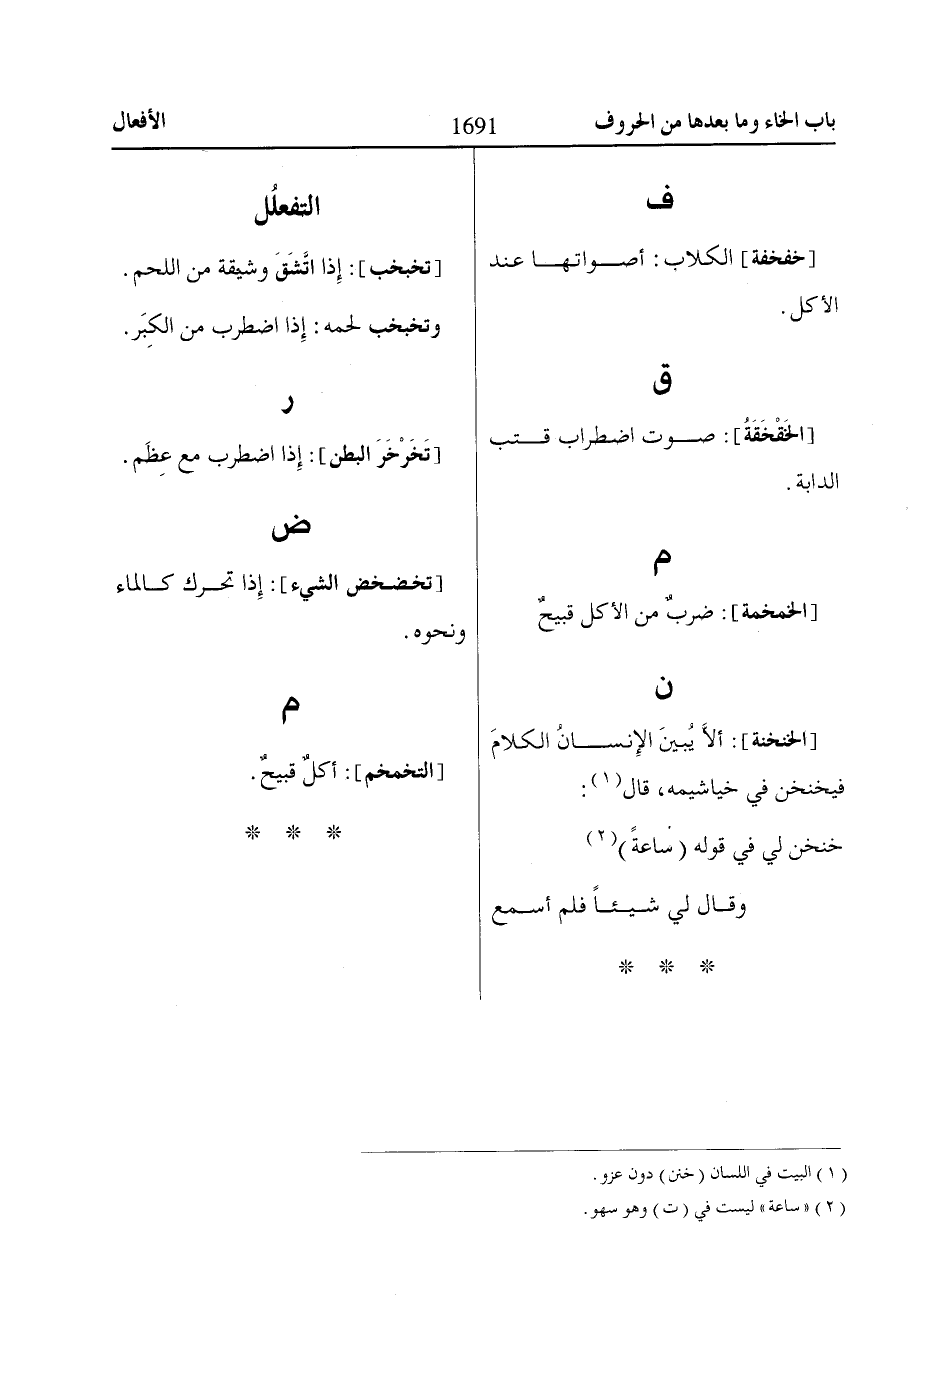 باب الخاء وما بعدها من الحروف 1691 الأفعال
ف
[خفخفة] الكلاب: أصواتها عند
الأكل.
ق
[الخَقْخَقَةُ]: صوت اضطراب قتب
الدابة.
م
[الخمخمة]: ضربٌ من الأكل قبيحٌ
ن
[الخنخنة]: ألاَّ يُبينَ الإنسانُ الكلامَ
فيخنخن في خياشيمه، قال(١):
خنخن لي في قوله (ساعةً)(٢)
وقال لي شيئاً فلم أسمع
* * *
التفعلُل
[تخبخب]: إِذا اتَّشَقَ وشيقة من اللحم.
وتخبخب لحمه: إِذا اضطرب من الكِبَر.
ر
[تَخَرْخَرَ البطن]: إِذا اضطرب مع عِظَم.
ض
[تخضخض الشيء]: إِذا تحرك كالماء
ونحوه.
م
[التخمخم]: أكلٌ قبيحٌ.
* * *
(١) البيت في اللسان (خنن) دون عزو.
(٢) «ساعة» ليست في (ت) وهو سهو.